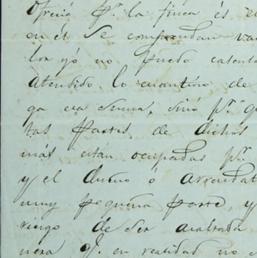 Ofreció pr. la finca és e
en él se comprendan va
los yó no puedo calcula
atendido lo cuantioso de
ga esa suma, sinó pr. q
tas partes, de dichos
más están ocupadas pr.
y el dueño ó arrendat
muy pequeña parte, y
riesgo de ser arabada
nera q. en realidad no e